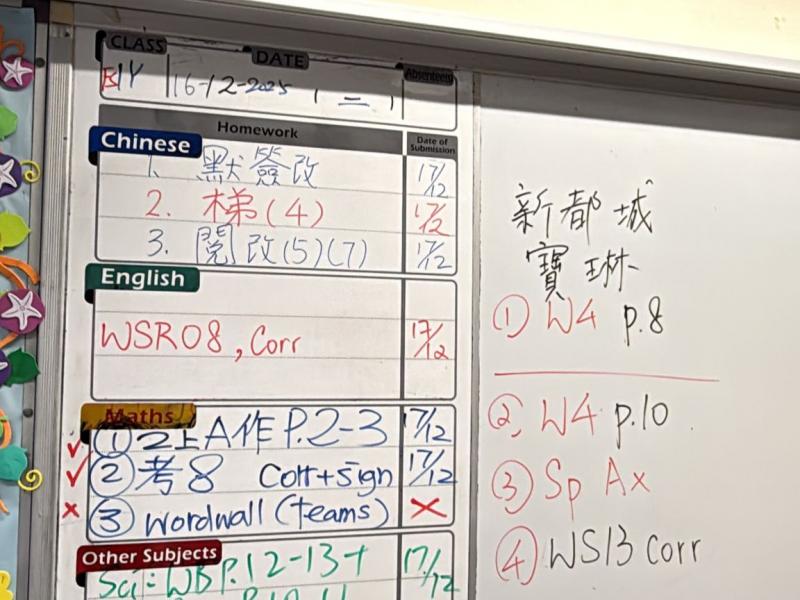 CLASS DATE Absentees
16-12-2025 (二)
Homework Date of Submission
Chinese
1. 默簽改 17/12
2. 梯(4) 17/12
3. 閱改(5)(7) 17/12
English
WSR08, Corr 17/12
Maths
① 2上A作 P.2-3 17/12
② 考8 Corr+sign 17/12
③ wordwall (teams)
Other Subjects
Sci: WB P.12-13+ 17/12
新都城
寶琳
① W4 p.8
② W4 p.10
③ Sp Ax
④ WS13 corr